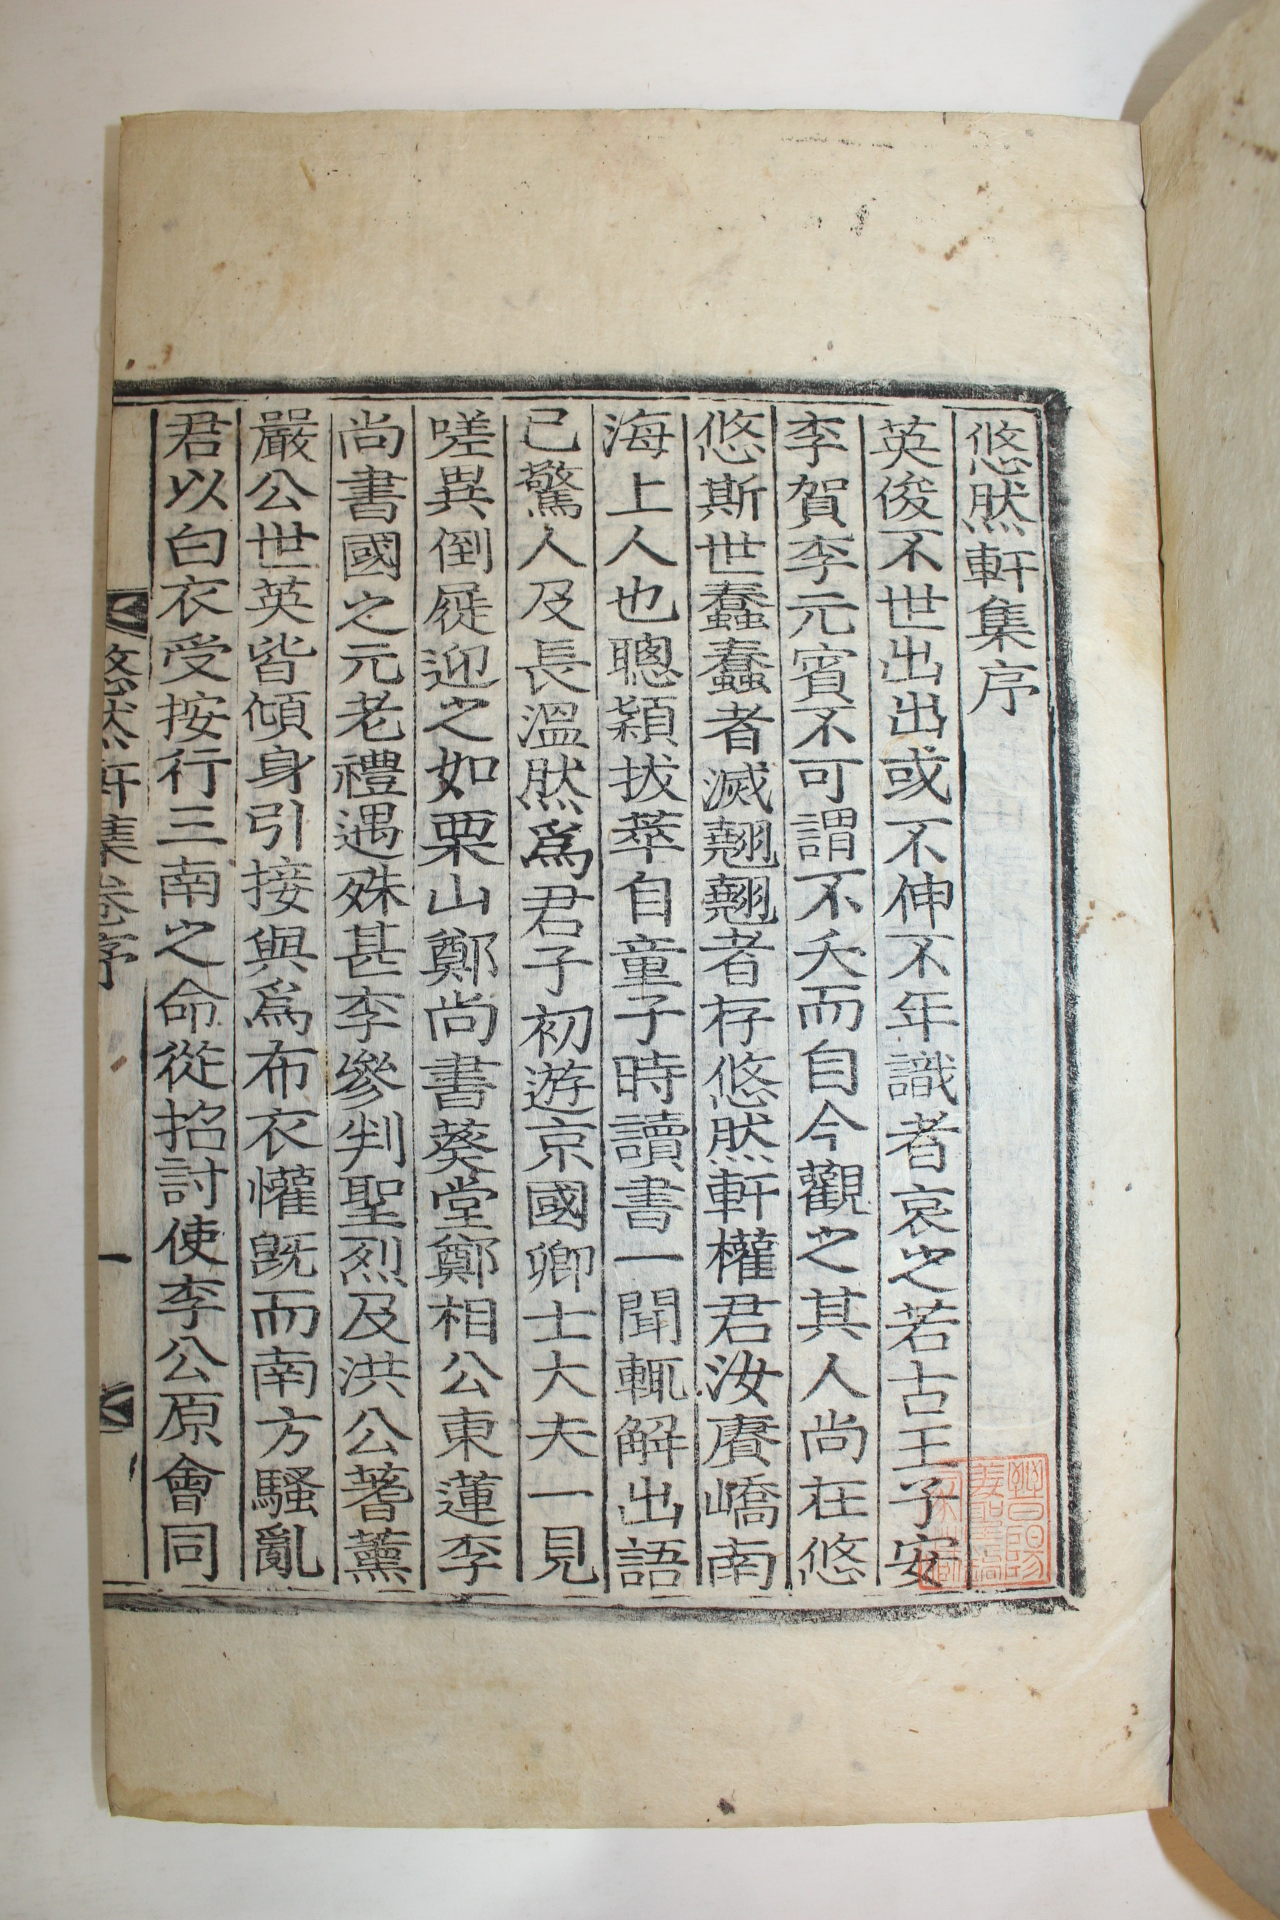 悠然軒集序
英俊不世出出或不伸不年識者哀之若古王子安
李賀李元賓不可謂不夭而自今觀之其人尚在悠
悠斯世蠢蠢者滅翹翹者存悠然軒權君汝賡嶠南
海上人也聰穎拔萃自童子時讀書一聞輒解出語
已驚人及長溫然爲君子初遊京國卿士大夫一見
嗟異倒屣迎之如栗山鄭尚書葵堂鄭相公東蓮李
尚書國之元老禮遇殊甚李參判聖烈及洪公蓍薰
嚴公世英皆傾身引接與爲布衣懽旣而南方騷亂
君以白衣受按行三南之命從招討使李公原會同
悠然軒集卷序
一